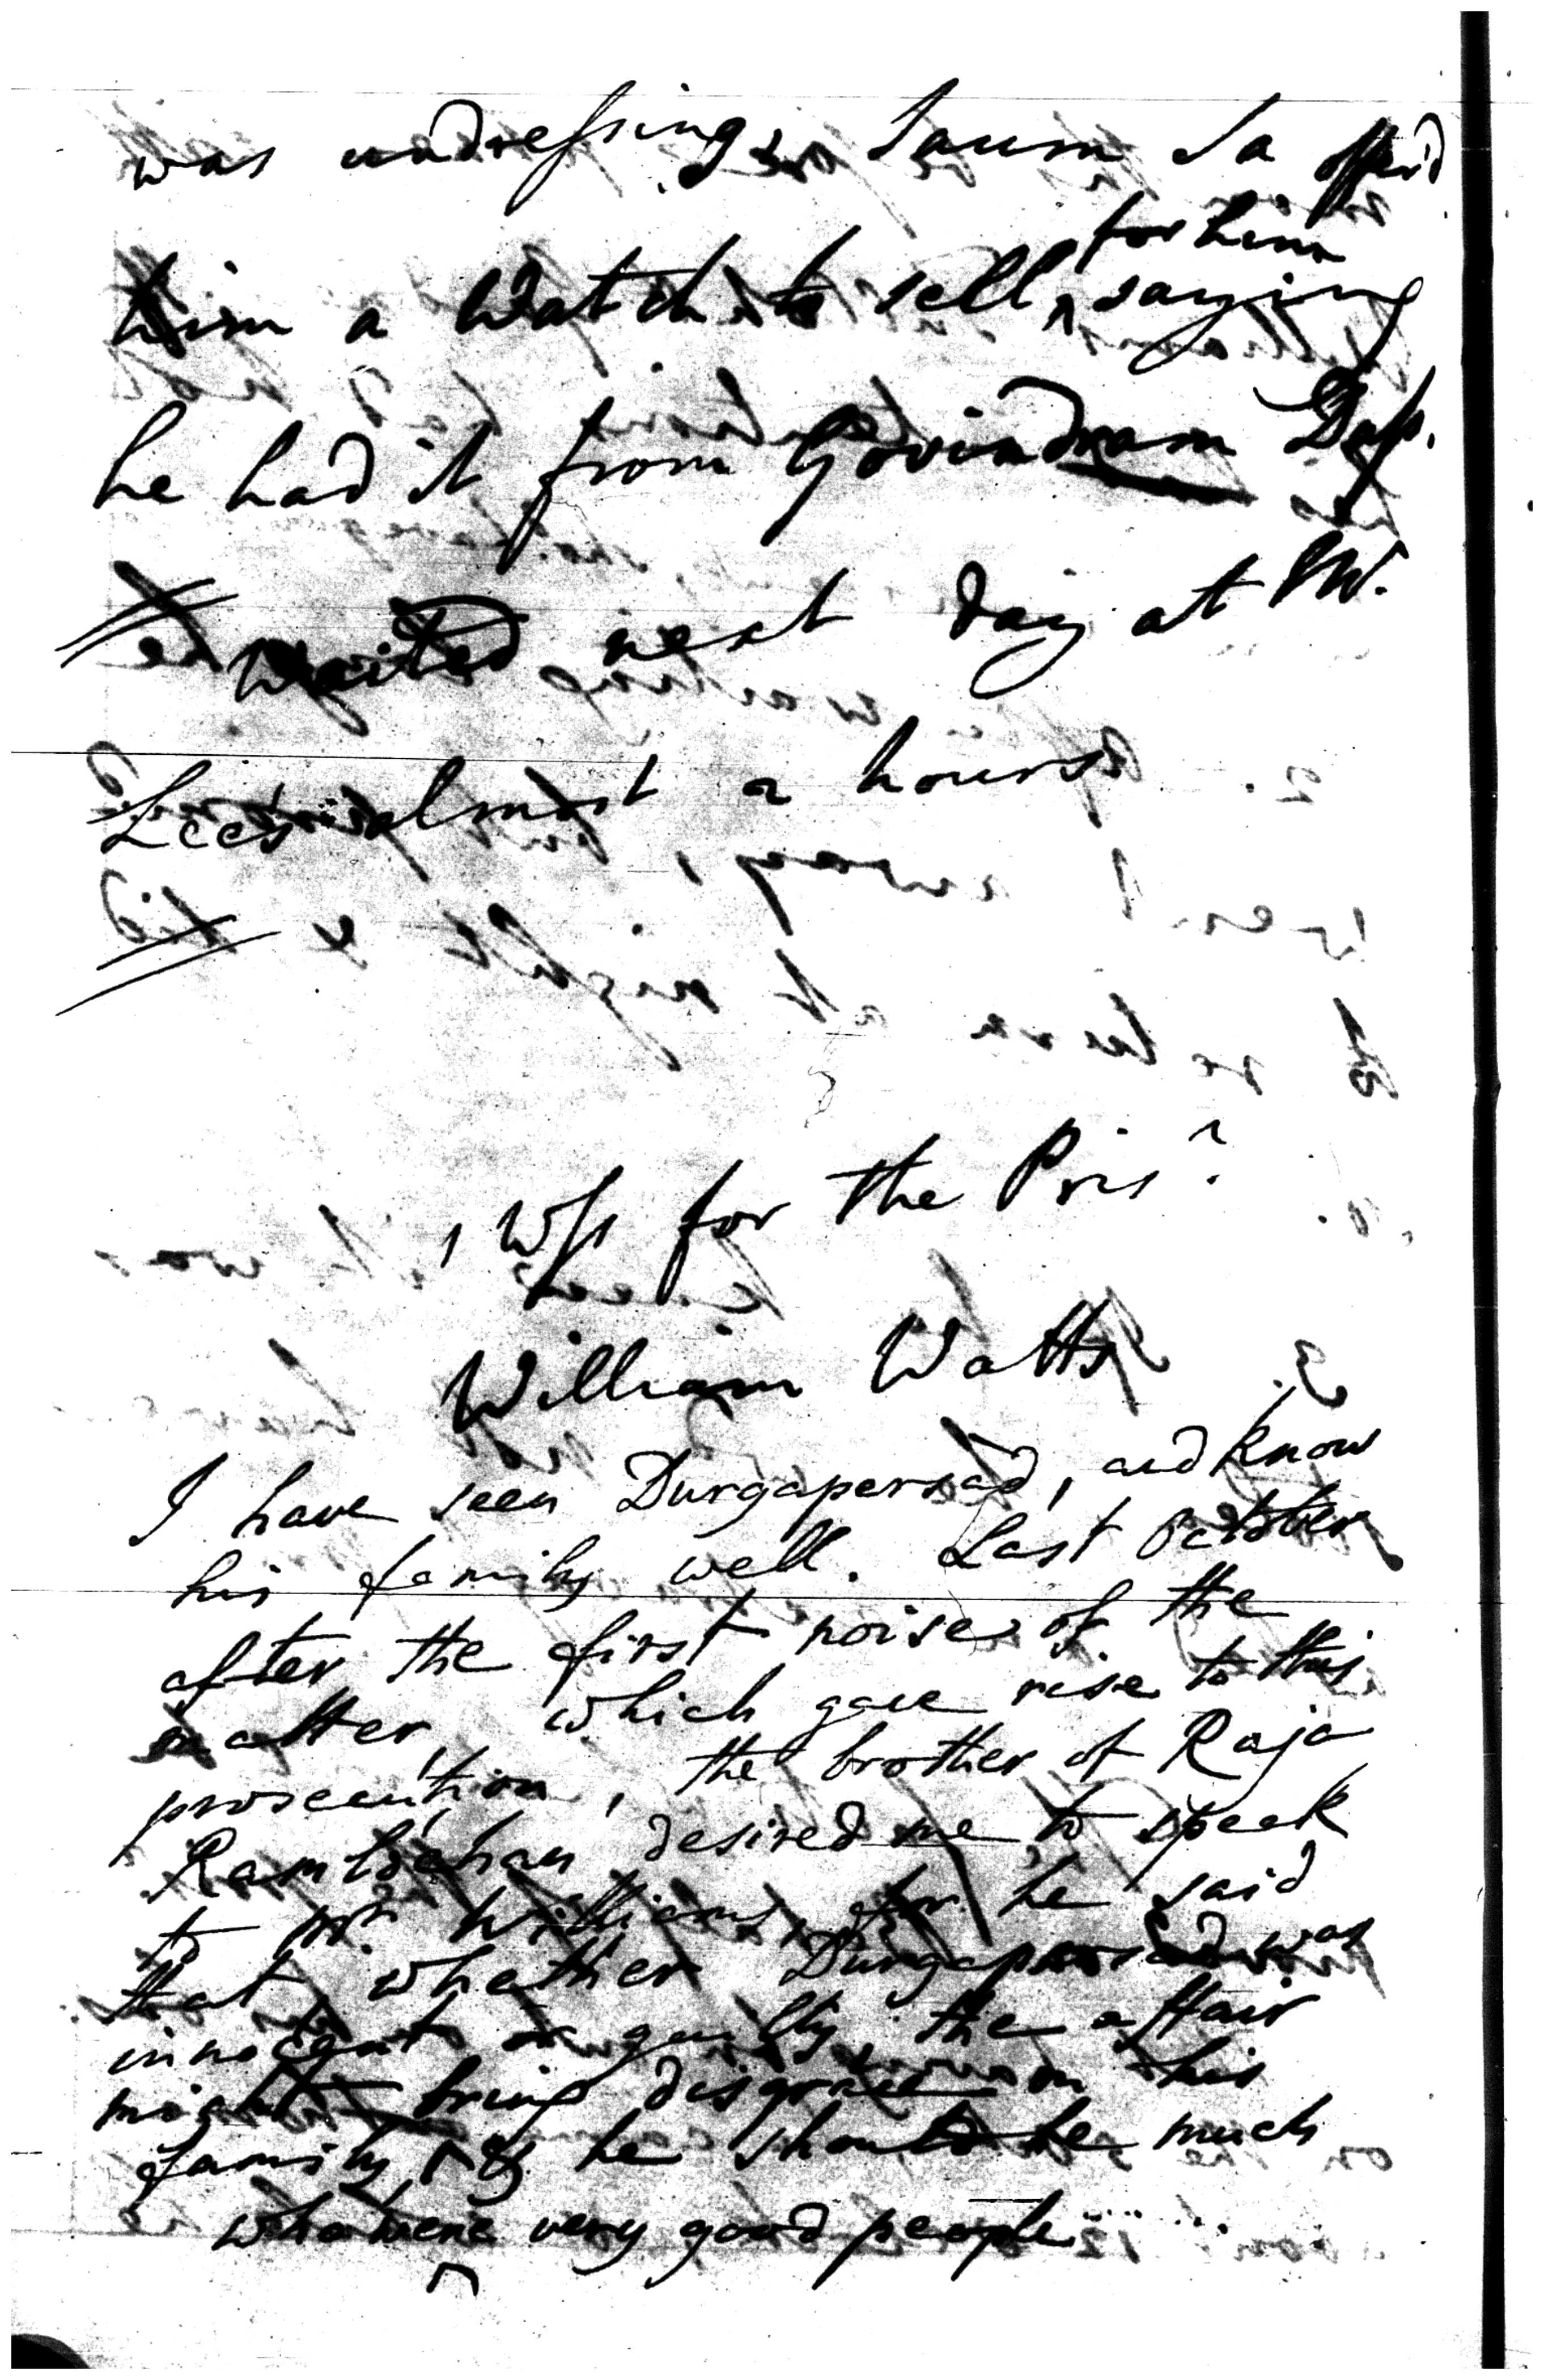 was undressing, Saum Sa offer'd
for him
him a Watch to sell ^ saying
he had it from Govindram Dass.
he waited next day at W.
Lee's almost 2 hours
1 Wss for the Pris.r
William Watts
I have seen Durgapersad, and know
his family well. Last October
after the first noise of the
matter, which gave rise to this
prosecution, the brother of Raja
Ramlochan desired me to speak
to Mr. Williams, for he said
that, whether Durgapersad was
innocent or guilty the affair
might bring disgrace on his
family, ^ & he should be much
who were very good people
^